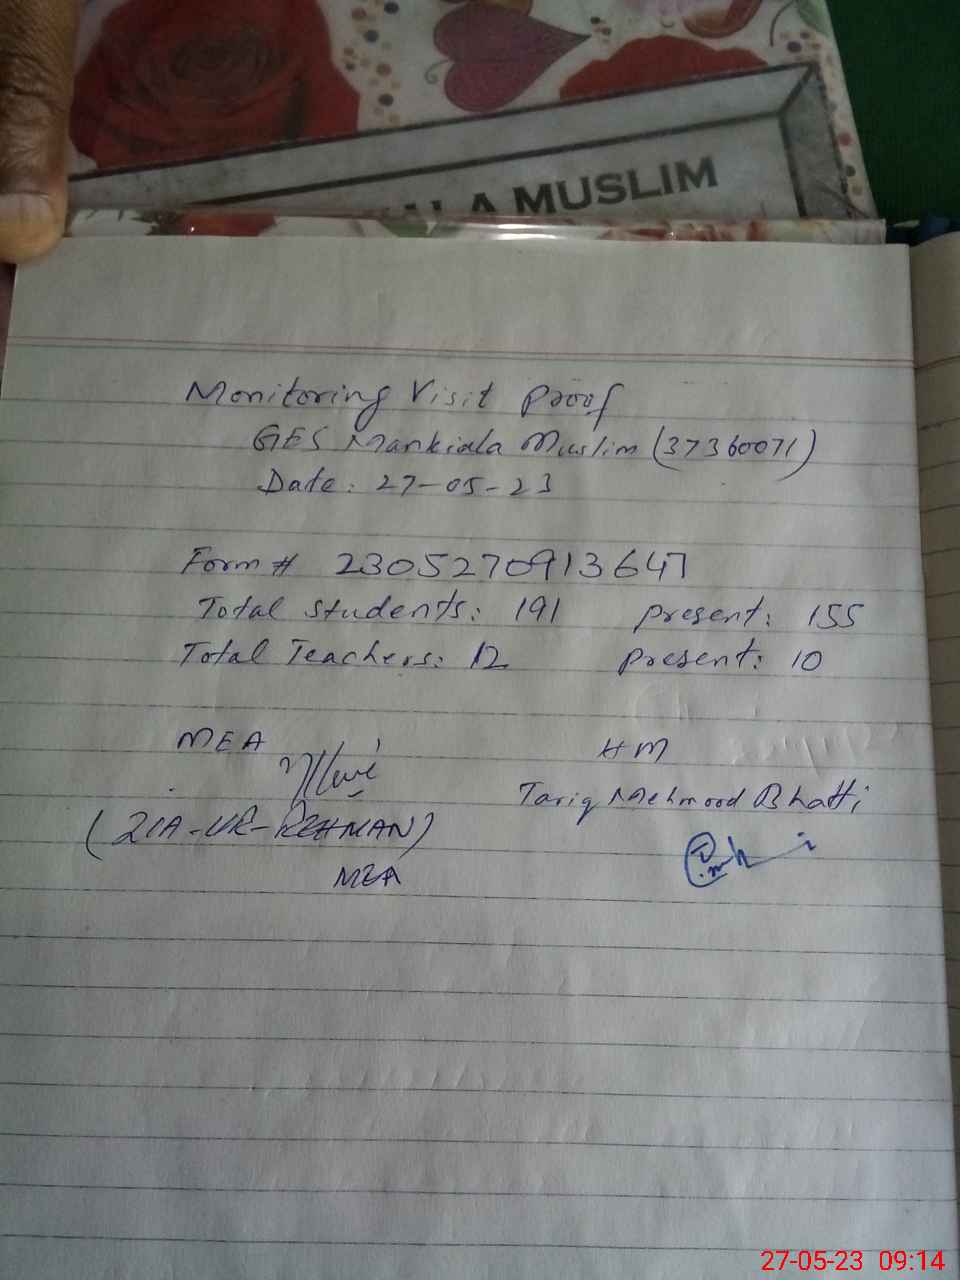 ALA MUSLIM
Monitoring Visit Proof
GES Mankiala Muslim (37360071)
Date: 27-05-23
Form # 2305270913647
Total Students: 191 present: 155
Total Teachers: 12 present: 10
MEA HM
Tariq Mehmood Bhatti
(ZIA-UR-REHMAN)
MEA
27-05-23 09:14